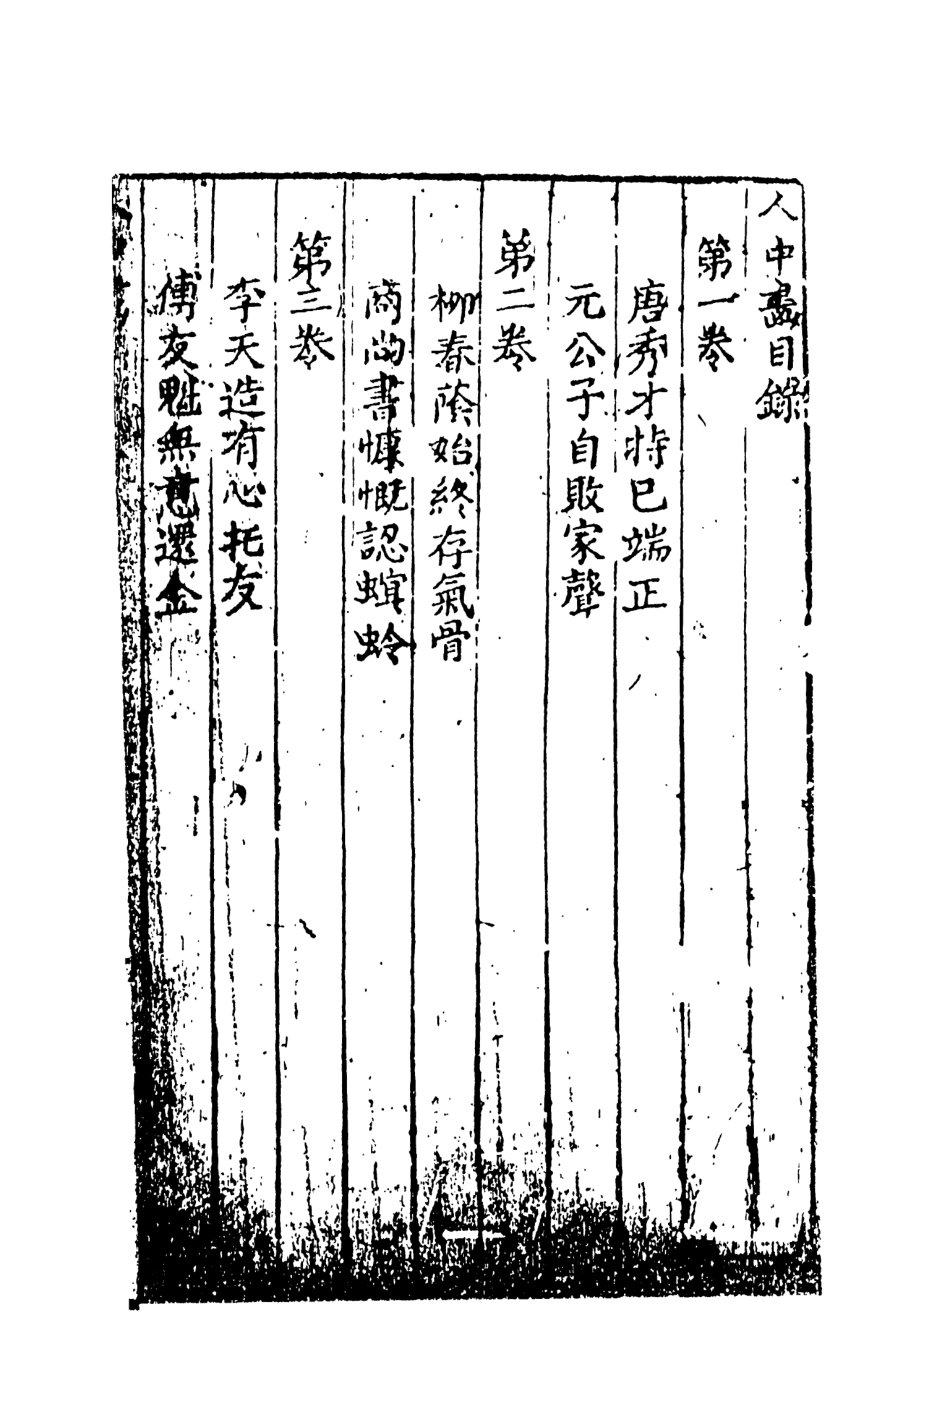 人中畫目錄
第一卷
唐秀才持已端正
元公子自敗家聲
第二卷
柳春蔭始終存氣骨
商尚書慷慨認螟蛉
第三卷
李天造有心托友
傅友魁無意還金